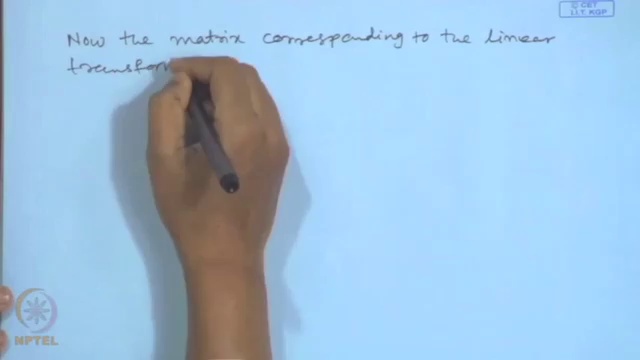 © CET
I.I.T. KGP
Now the matrix corresponding to the linear
transfor
NPTEL